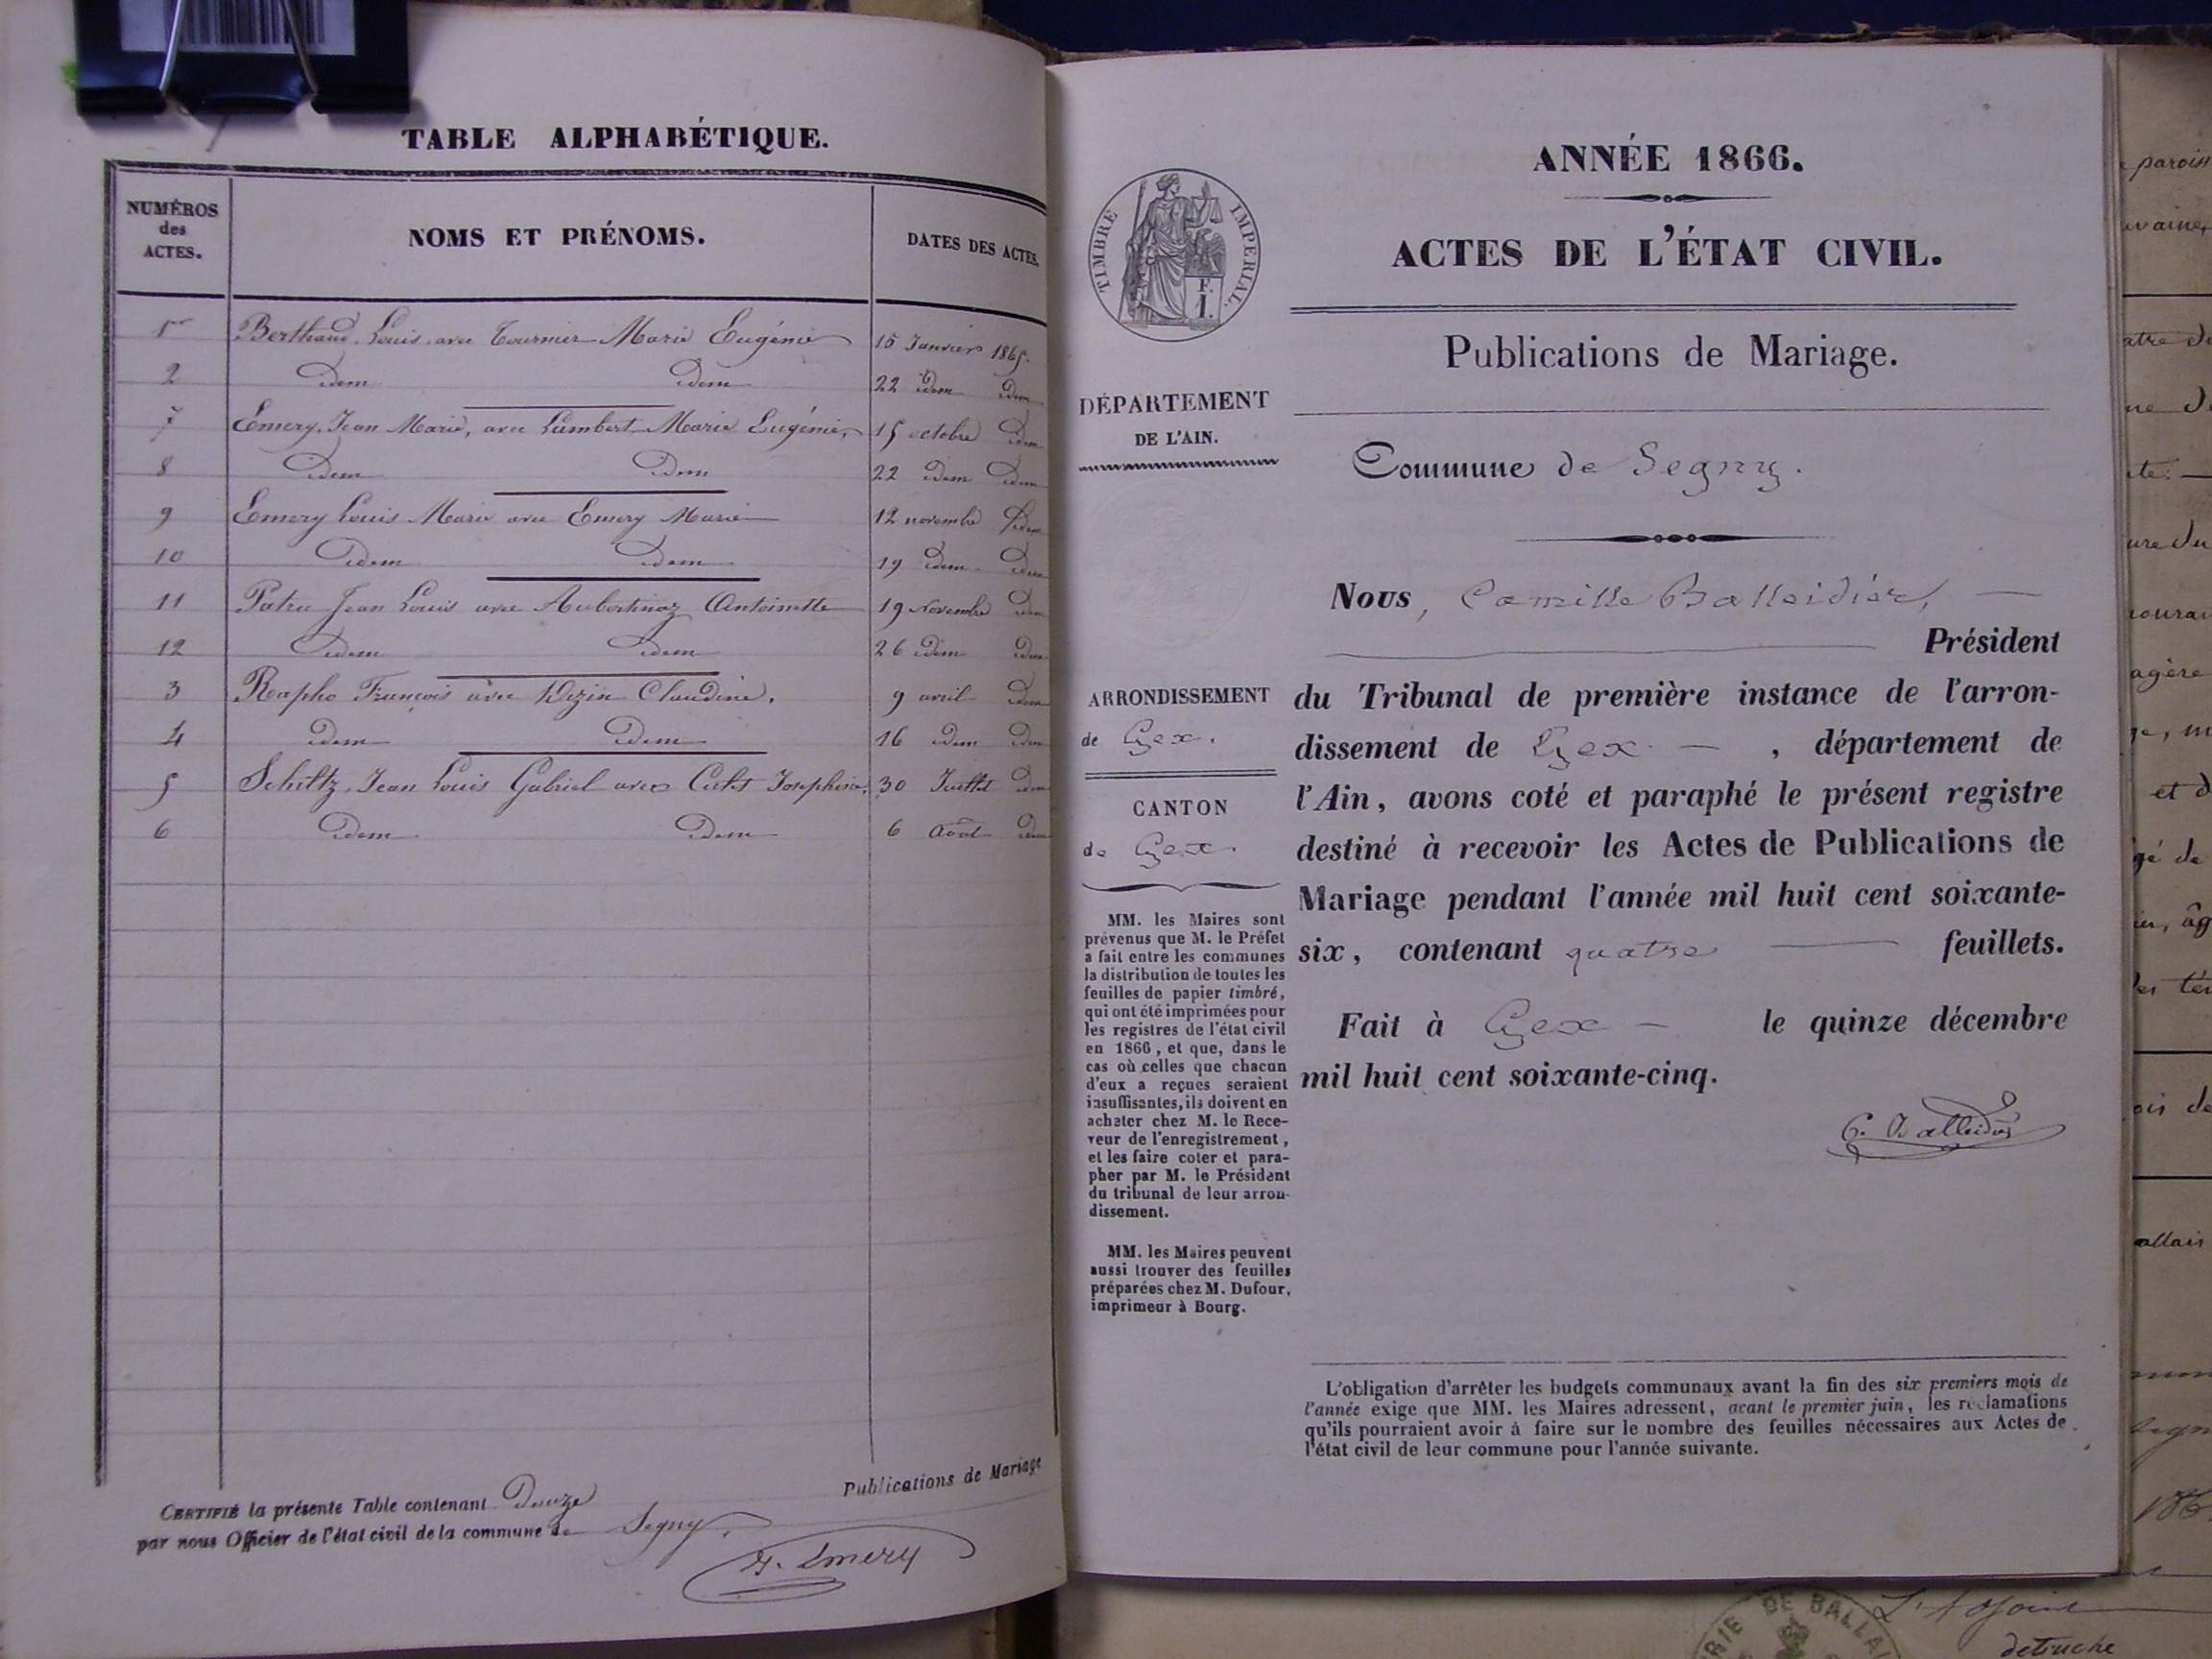 TABLE ALPHABÉTIQUE.
NUMÉROS des ACTES.
NOMS ET PRÉNOMS.
DATES DES ACTES.
1er Berthaud Louis avec Tournier Marie Eugénie 15 Janvier 1865.
2 idem idem 22 idem idem
7 Emery, Jean Marie, avec Lambert Marie Eugénie, 15 octobre idem
8 idem idem 22 idem idem
9 Emery Louis Marie avec Emery Marie 12 novembre idem
10 idem idem 19 idem idem
11 Patru Jean Louis avec Antoinette 19 Novembre idem
12 idem idem 26 idem idem
3 Rapho François avec Claudine, 9 avril idem
4 idem idem 16 idem idem
5 Schiltz, Jean Louis Gabriel avec Josephine, 30 Juillet idem
6 idem idem 6 Août idem
CERTIFIÉ la présente Table contenant Douze Publications de Mariage
par nous Officier de l'état civil de la commune de Segny.
J. Emery
ANNÉE 1866.
ACTES DE L'ÉTAT CIVIL.
TIMBRE IMPÉRIAL.
F.
1.
Publications de Mariage.
DÉPARTEMENT
DE L'AIN.
Commune de Segny.
Nous, Camille Balleidier,
Président
ARRONDISSEMENT
de Gex.
CANTON
de Gex.
du Tribunal de première instance de l'arron-
dissement de Gex, département de
l'Ain, avons coté et paraphé le présent registre
destiné à recevoir les Actes de Publications de
Mariage pendant l'année mil huit cent soixante-
six, contenant quatre feuillets.
Fait à Gex le quinze décembre
mil huit cent soixante-cinq.
C. Balleidier
MM. les Maires sont
prévenus que M. le Préfet
a fait entre les communes
la distribution de toutes les
feuilles de papier timbré,
qui ont été imprimées pour
les registres de l'état civil
en 1866, et que, dans le
cas où celles que chacun
d'eux a reçues seraient
insuffisantes, ils doivent en
acheter chez M. le Rece-
veur de l'enregistrement,
et les faire coter et para-
pher par M. le Président
du tribunal de leur arron-
dissement.
MM. les Maires peuvent
aussi trouver des feuilles
préparées chez M. Dufour,
imprimeur à Bourg.
L'obligation d'arrêter les budgets communaux avant la fin des six premiers mois de
l'année exige que MM. les Maires adressent, avant le premier juin, les réclamations
qu'ils pourraient avoir à faire sur le nombre des feuilles nécessaires aux Actes de
l'état civil de leur commune pour l'année suivante.
et d
gé de
L'Adjoint
détruche
RIE DE BALLA